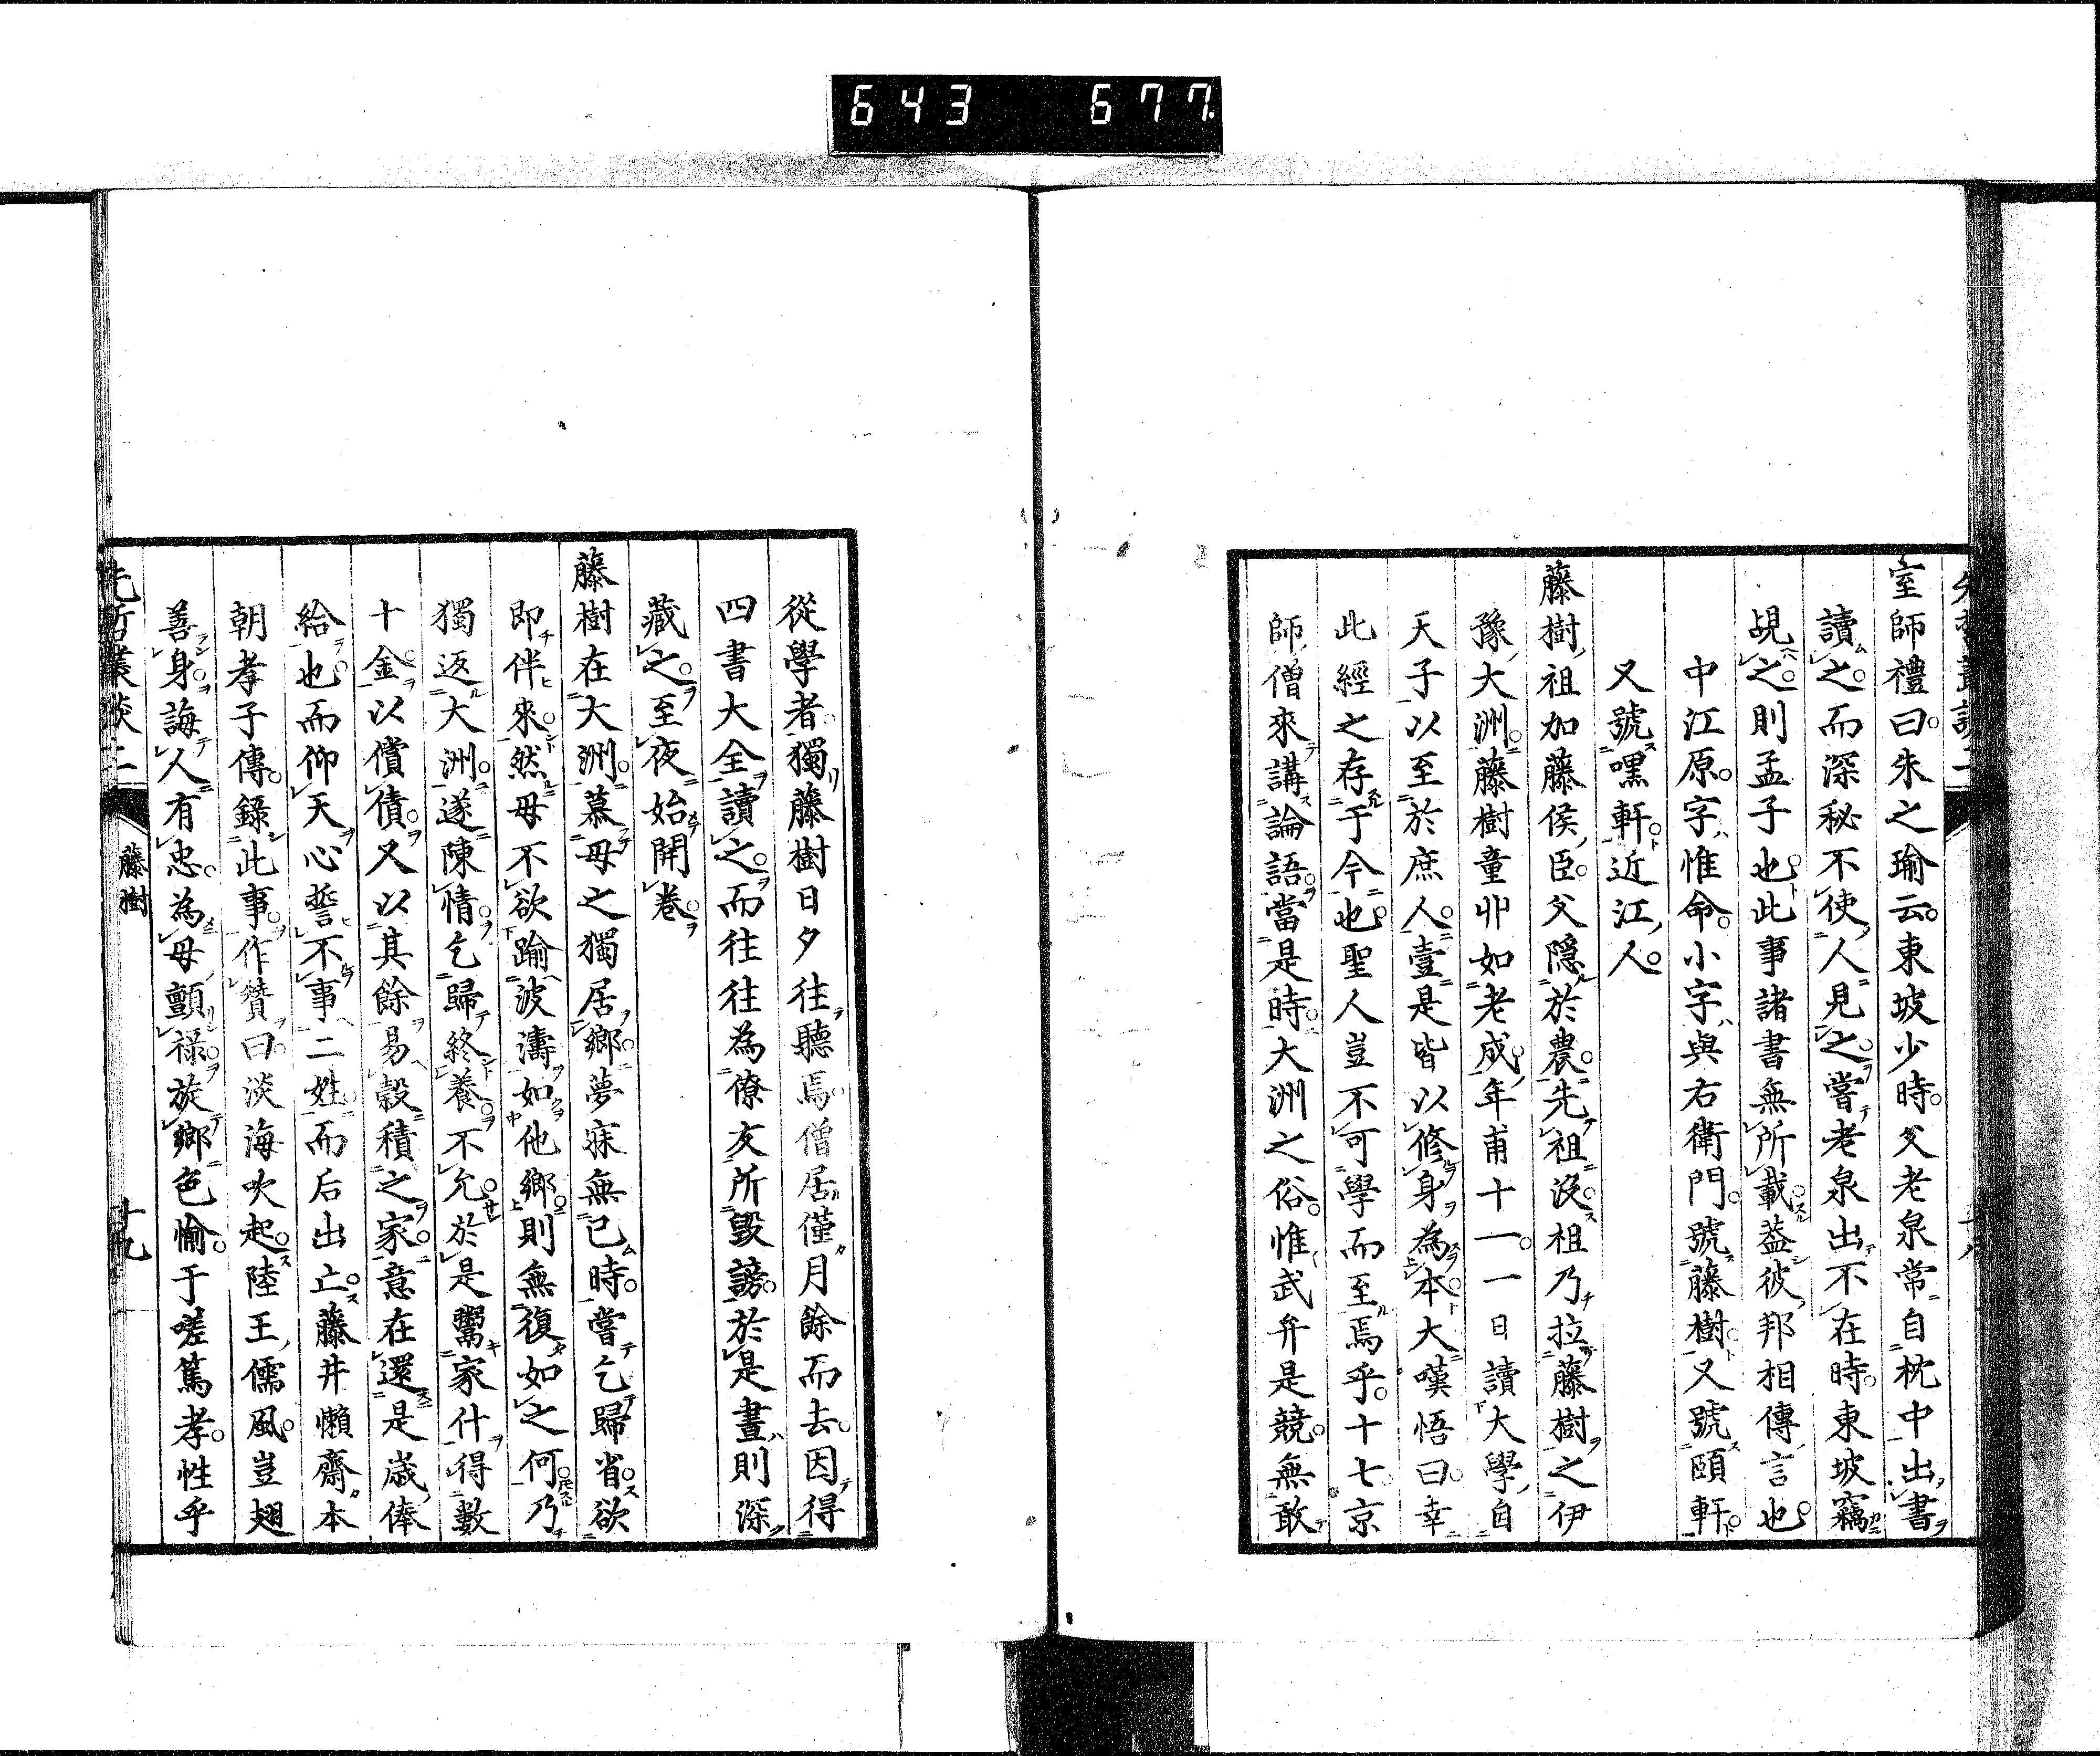 643 677.
室師禮曰朱之瑜云東坡少時父老泉常自枕中出書
讀之而深秘不使人見之嘗老泉出不在時東坡竊
覘之則孟子也此事諸書無所載蓋彼邦相傳言也
中江原字惟命小字與右衛門號藤樹又號頤軒
又號嘿軒近江人
藤樹祖加藤侯臣父隱於農先祖沒祖乃拉藤樹之伊
豫大洲藤樹童丱如老成年甫十一一日讀大學自
天子以至於庶人壹是皆以修身為本大嘆悟曰幸
此經之存于今也聖人豈不可學而至焉乎十七京
師僧來講論語當是時大洲之俗惟武弁是競無敢
從學者獨藤樹日夕往聽焉僧居僅月餘而去因得
四書大全讀之而往往為僚友所毀謗於是晝則深
藏之至夜始開卷
藤樹在大洲慕母之獨居鄉夢寐無已時嘗乞歸省欲
即伴來然母不欲踰波濤如他鄉則無復如之何乃
獨返大洲遂陳情乞歸終養不允於是鬻家什得數
十金以償債又以其餘易穀積之家意在還是歲俸
給也而仰天心誓不事二姓而后出亡藤井懶齋本
朝孝子傳錄此事作贊曰淡海吹起陸王儒風豈翅
善身誨人有忠為母顫祿旋鄉色愉于嗟篤孝性乎
先哲叢談二
藤樹
十九